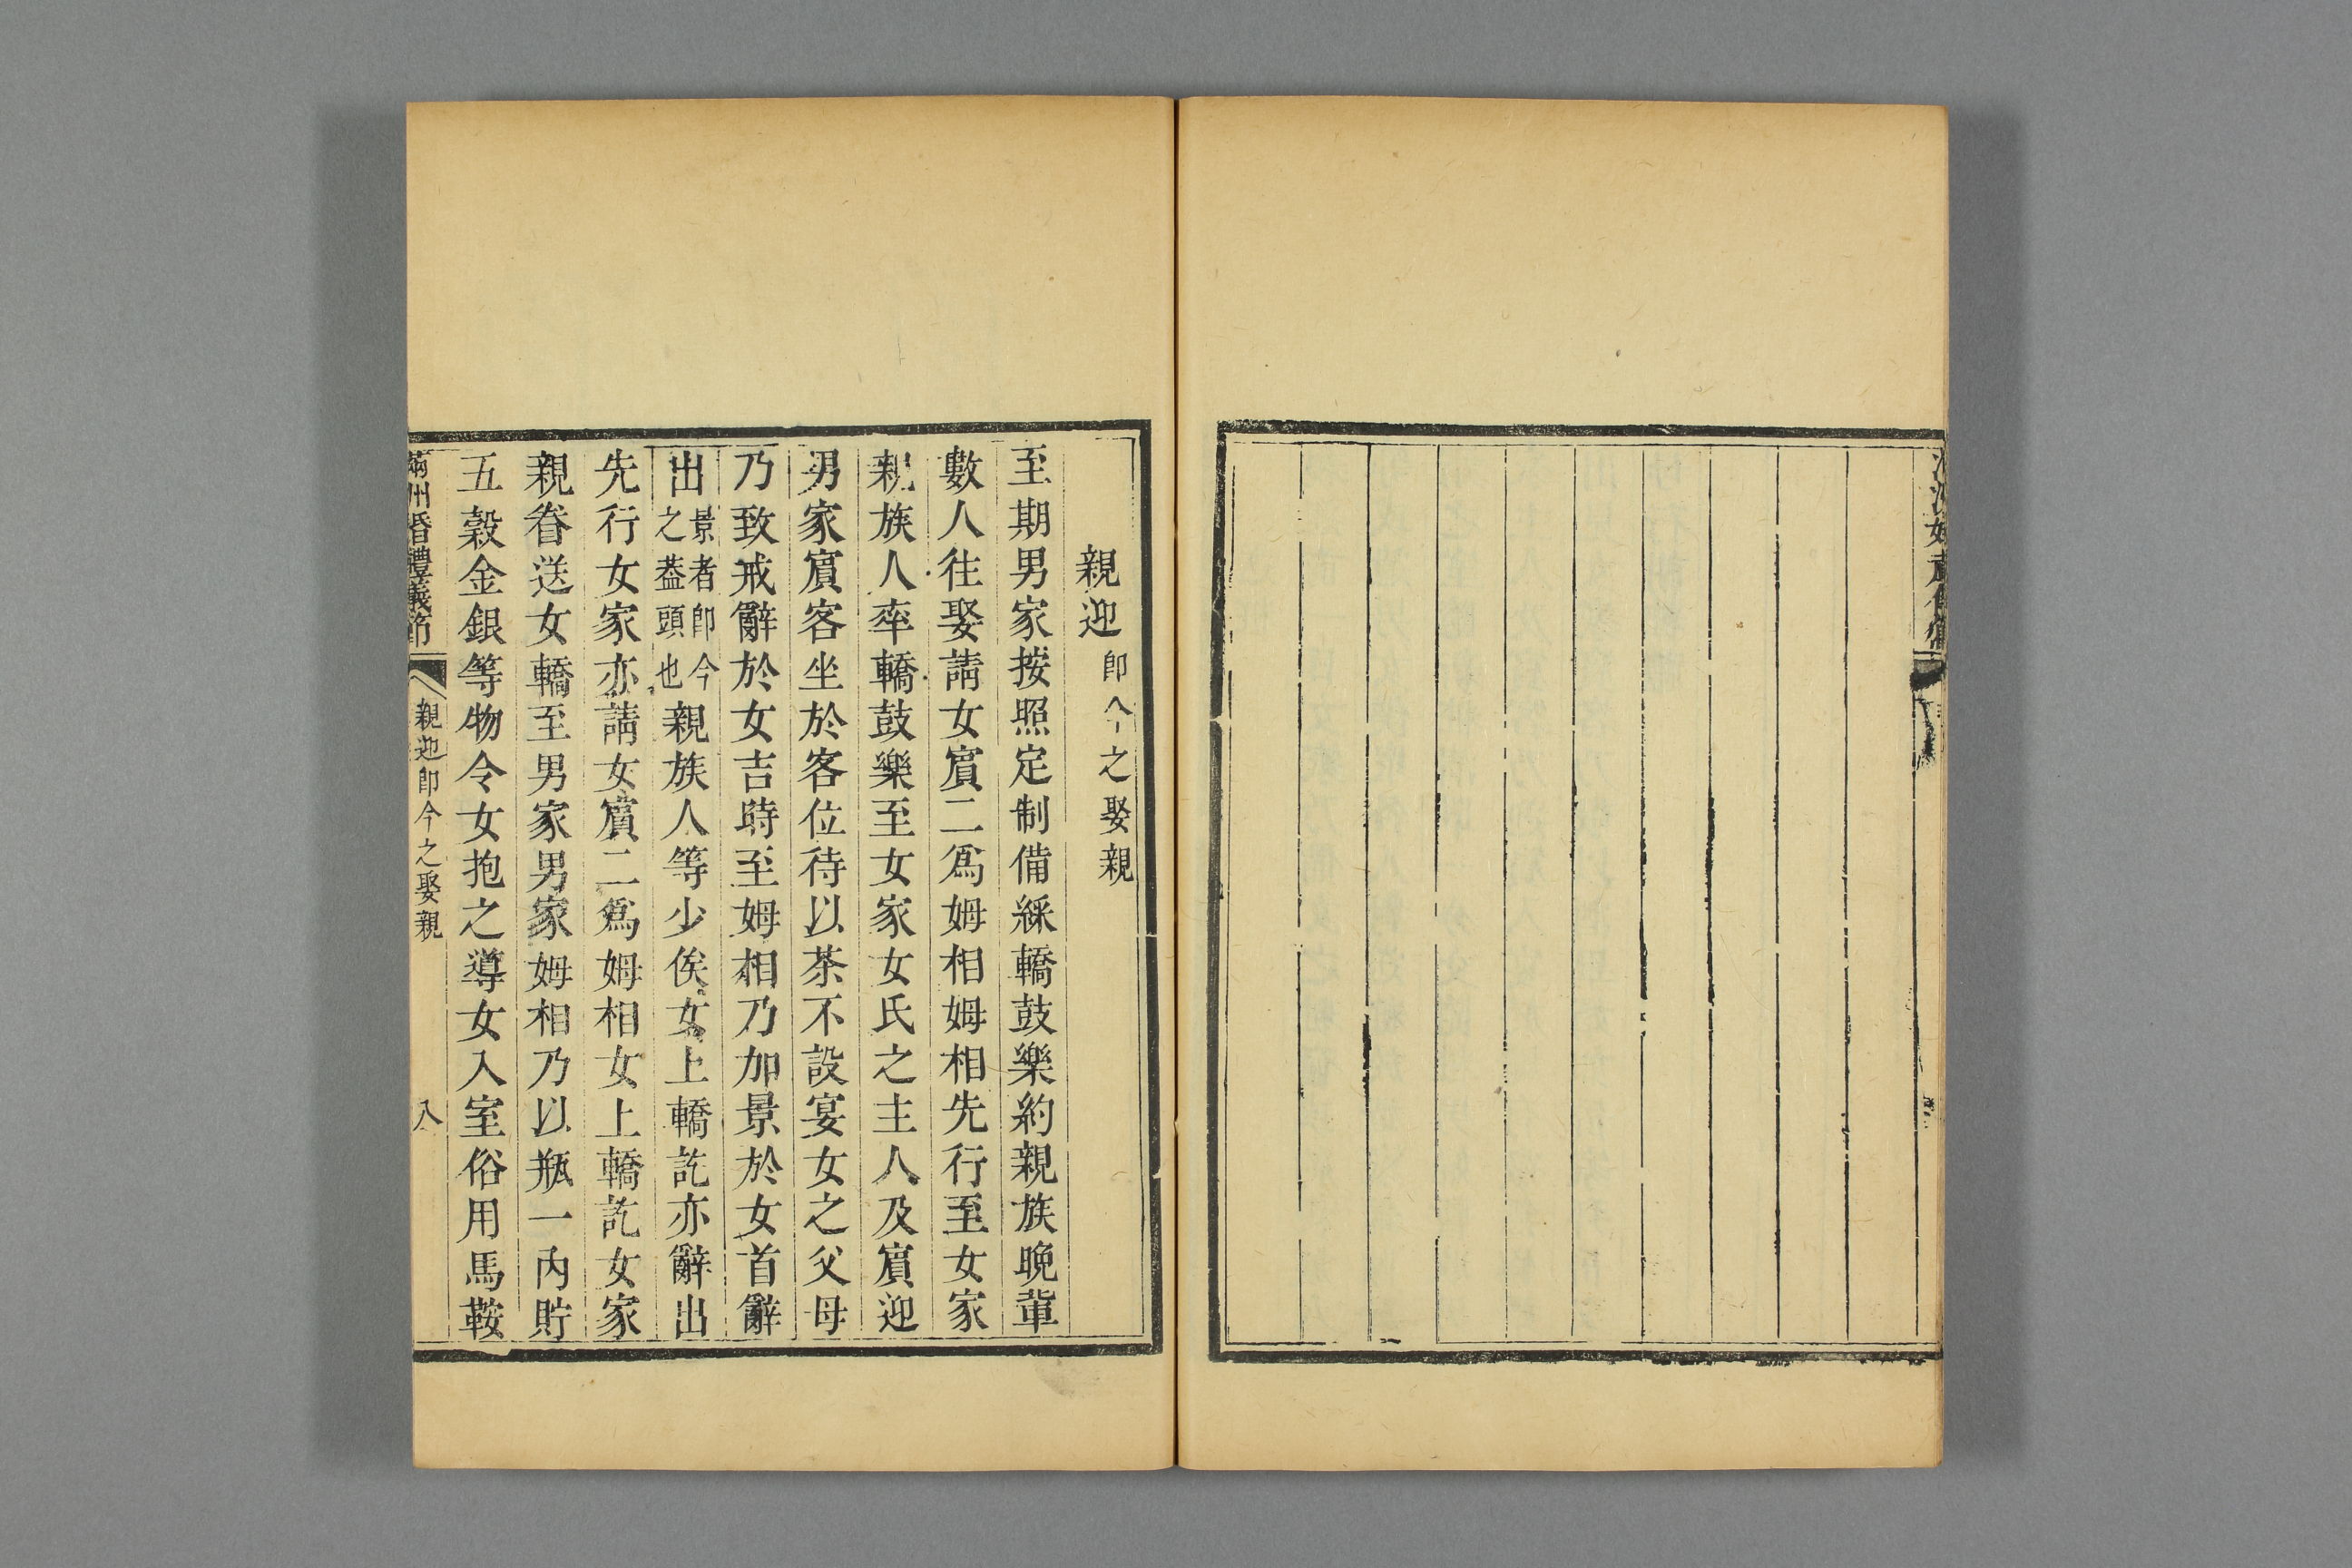 親迎 卽今之娶親
至期男家按照定制備綵轎鼓樂約親族晚輩
數人往娶請女賔二爲姆相姆相先行至女家
親族人率轎鼓樂至女家女氏之主人及賔迎
男家賔客坐於客位待以茶不設宴女之父母
乃致戒辭於女吉時至姆相乃加景於女首辭
出景者卽今之葢頭也親族人等少俟女上轎訖亦辭出
先行女家亦請女賔二爲姆相女上轎訖女家
親眷送女轎至男家男家姆相乃以瓶一內貯
五穀金銀等物令女抱之導女入室俗用馬鞍
滿州婚禮儀節 親迎卽今之娶親 八